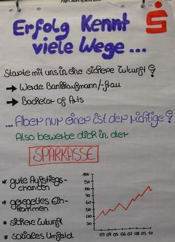 Erfolg Kennt
viele Wege ...
Starte mit uns in eine sichere Zukunft?
→ Werde Bankkaufmann/-frau
→ Bachelor of Arts
... Aber nur einer ist der richtige!
Also bewerbe dich in der
SPARKASSE
* gute Aufstiegs-
chancen
* geregeltes Ein-
kommen
* sichere Zukunft
* soziales Umfeld